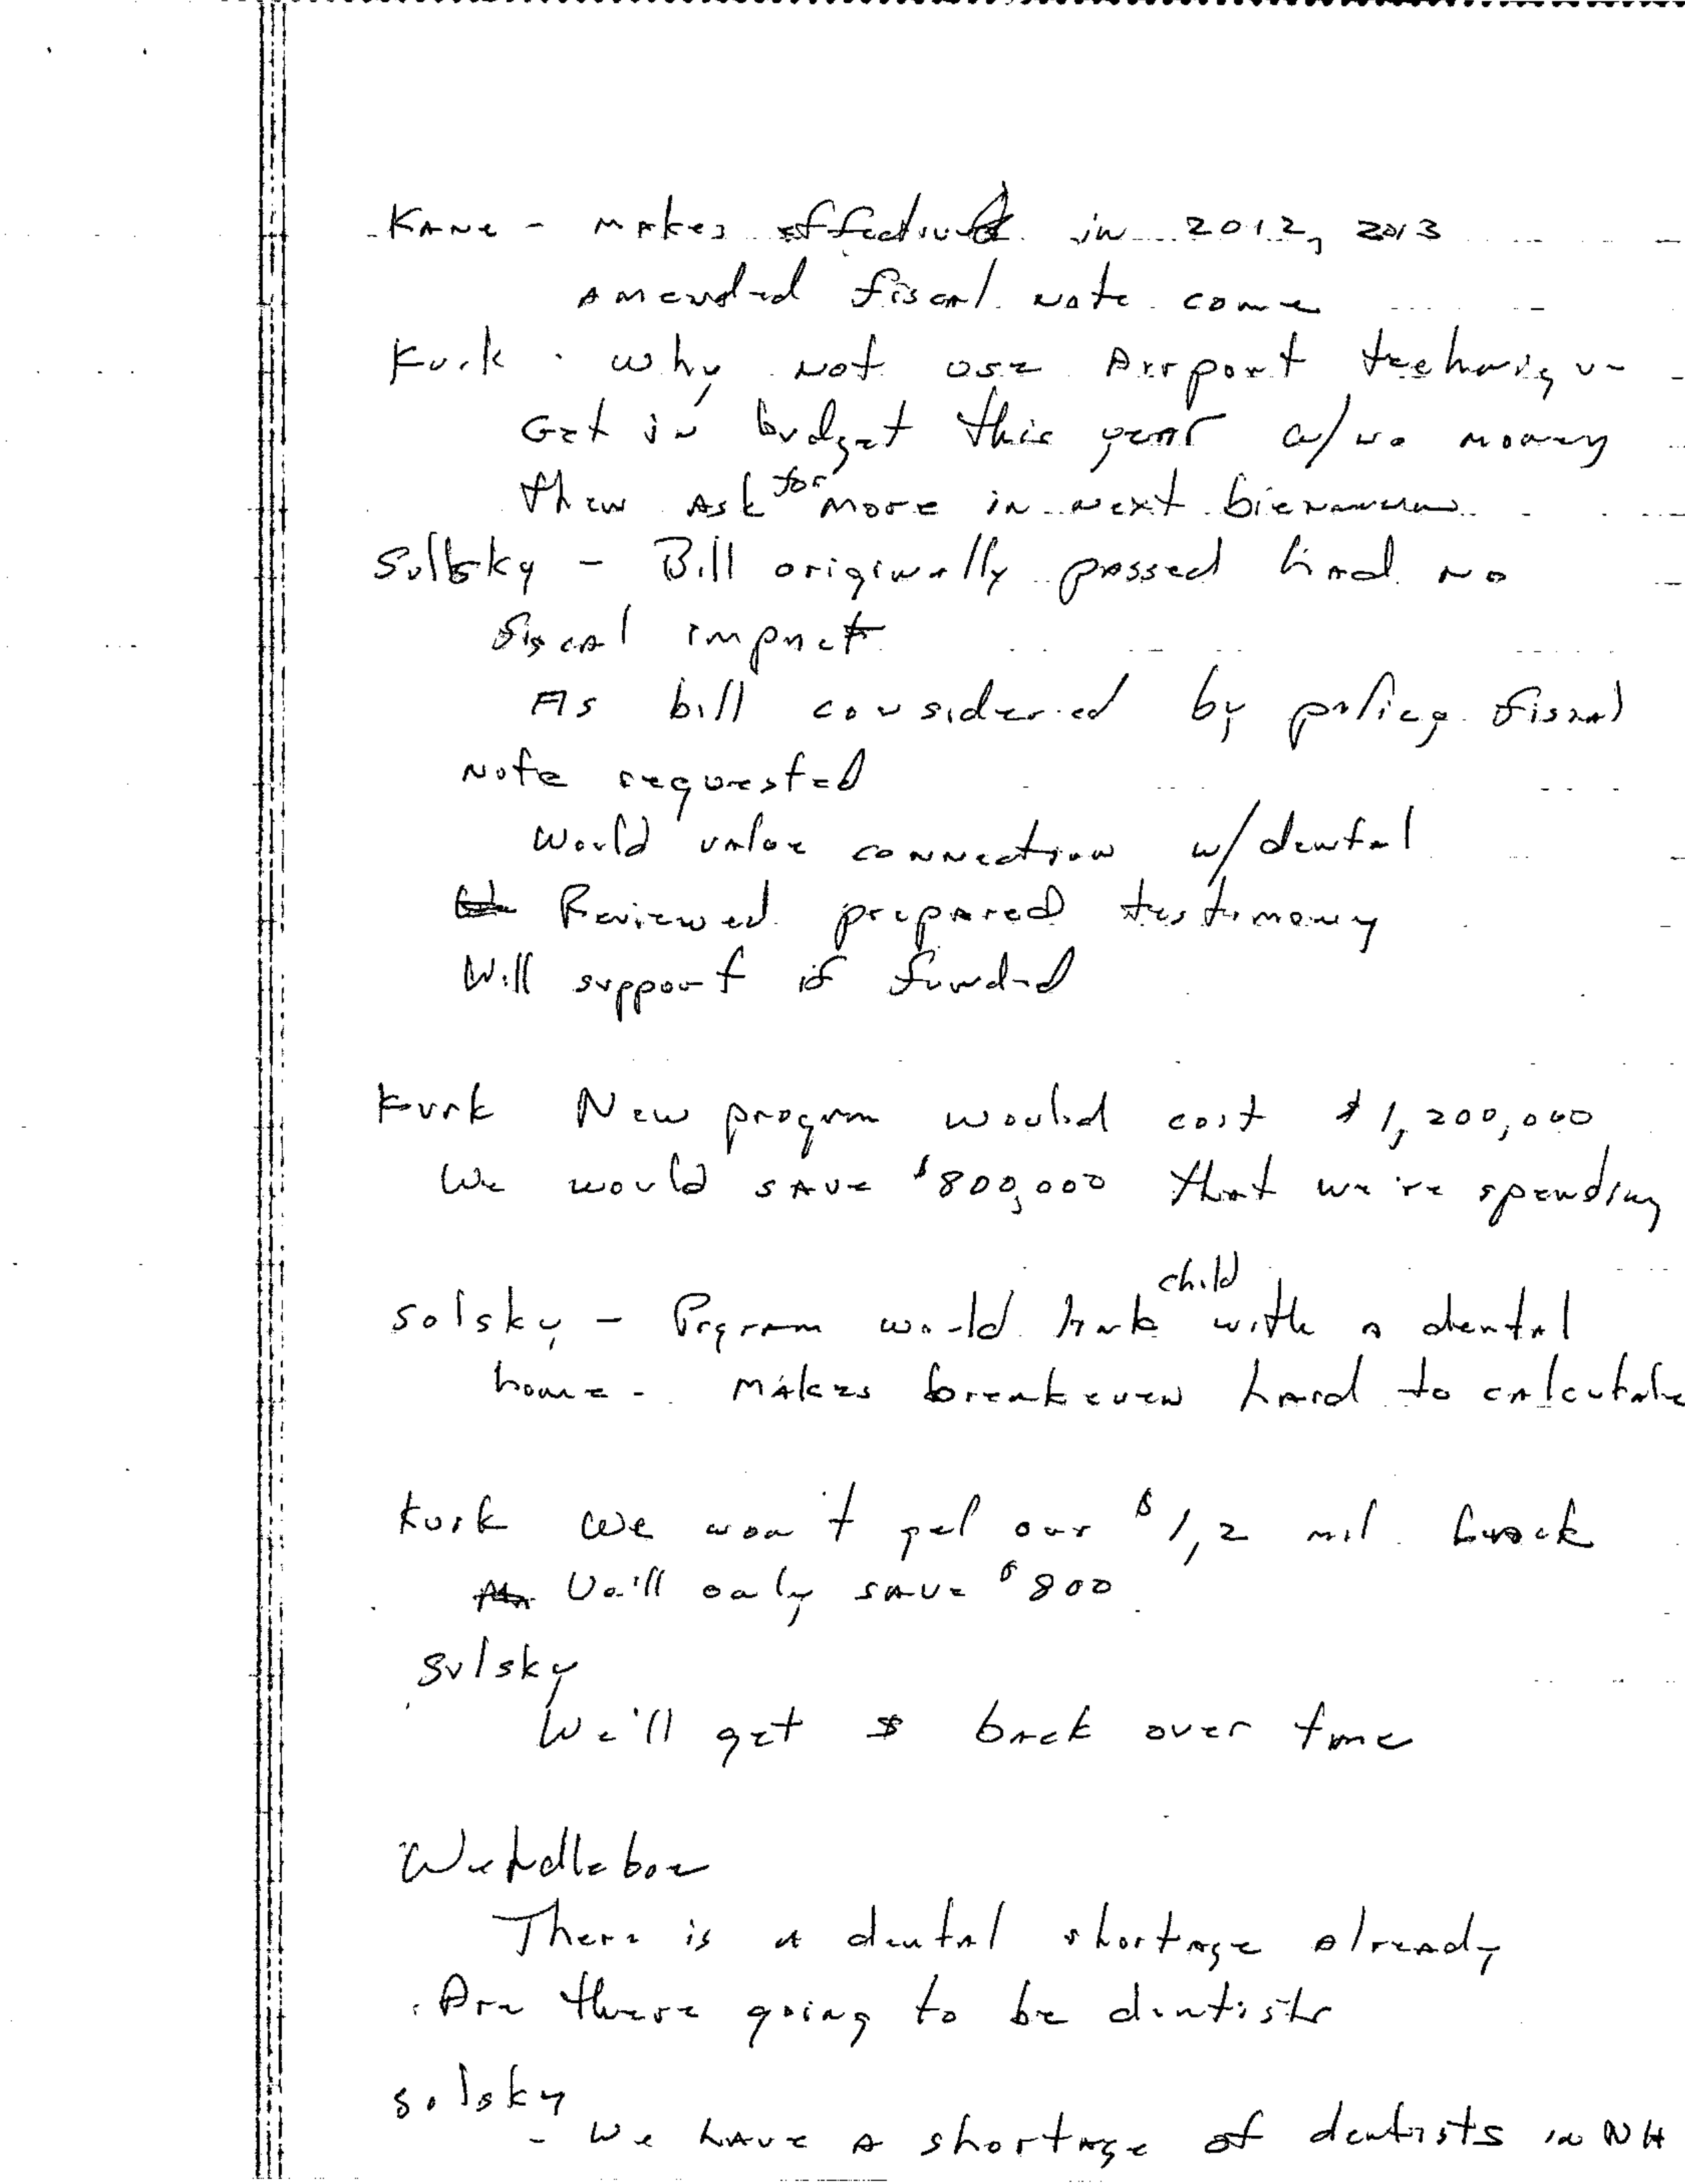 Kane - makes effective in 2012, 2013
Amended fiscal note come
Kurk - why not use Airport techniqu-
Get in budget this year w/no money
then ask for more in next biennium
Solsky - Bill originally passed had no
fiscal impact
As bill considered by policy fiscal
Note requested
Would value connection w/dental
Reviewed prepared testimony
Will support if funded
Kurk New program would cost $1,200,000
We would save $800,000 that we're spending
Solsky - Prgram would link child with a dental
home - Makes breakeven hard to calculate
Kurk We won't get our $1,2 mil. back
We'll only save $800
Solsky
We'll get $ back over time
There is a dental shortage already
Are there going to be dentists
Solsky
- We have a shortage of dentists in NH